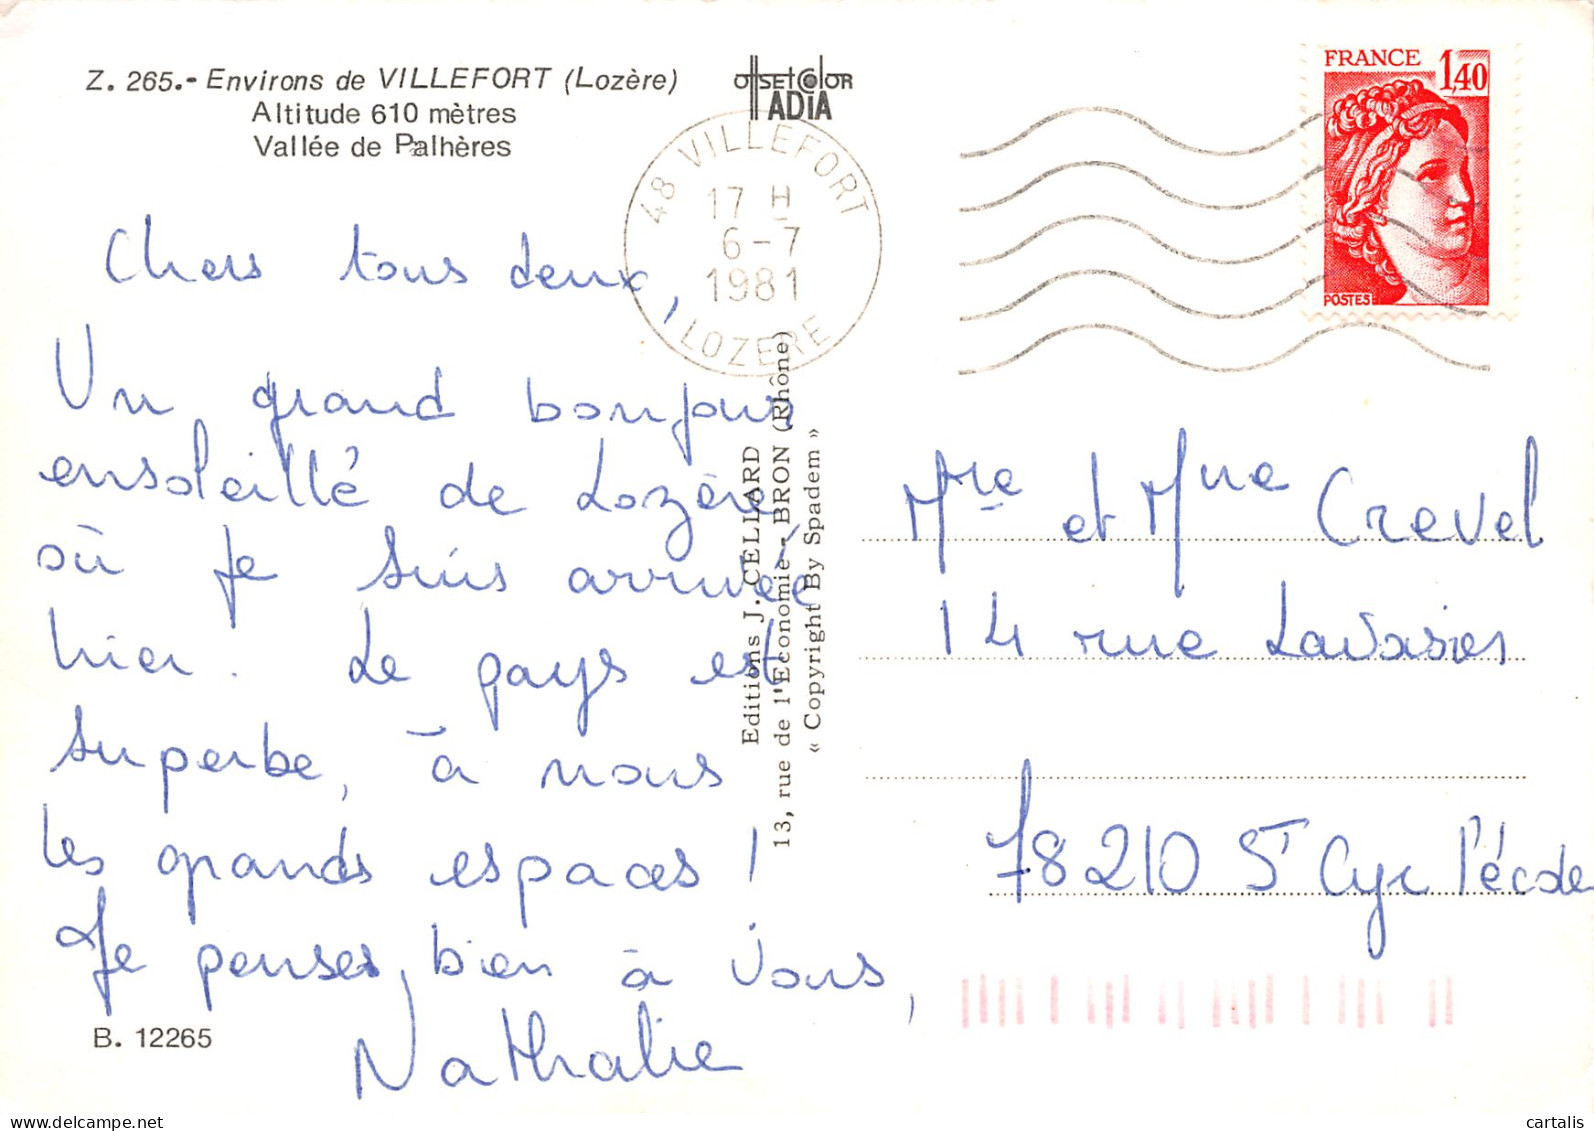 Z. 265.- Environs de VILLEFORT (Lozère)
Altitude 610 mètres
Vallée de Palhères
offsetcolor
ADIA
48 VILLEFORT
17 H
6-7
1981
LOZERE
FRANCE 1,40
POSTES
Chers tous deux,
Un grand bonjour
ensoleillé de Lozère,
où je suis arrivée
hier. Le pays est
superbe, à nous
les grands espaces !
Je penses bien à vous,
Nathalie
B. 12265
Editions J. CELLARD
13, rue de l'Economie - BRON (Rhône)
« Copyright By Spadem »
Mre et Mme Crevel
14 rue Lavoisier
78210 St Cyr l'école
cartalis